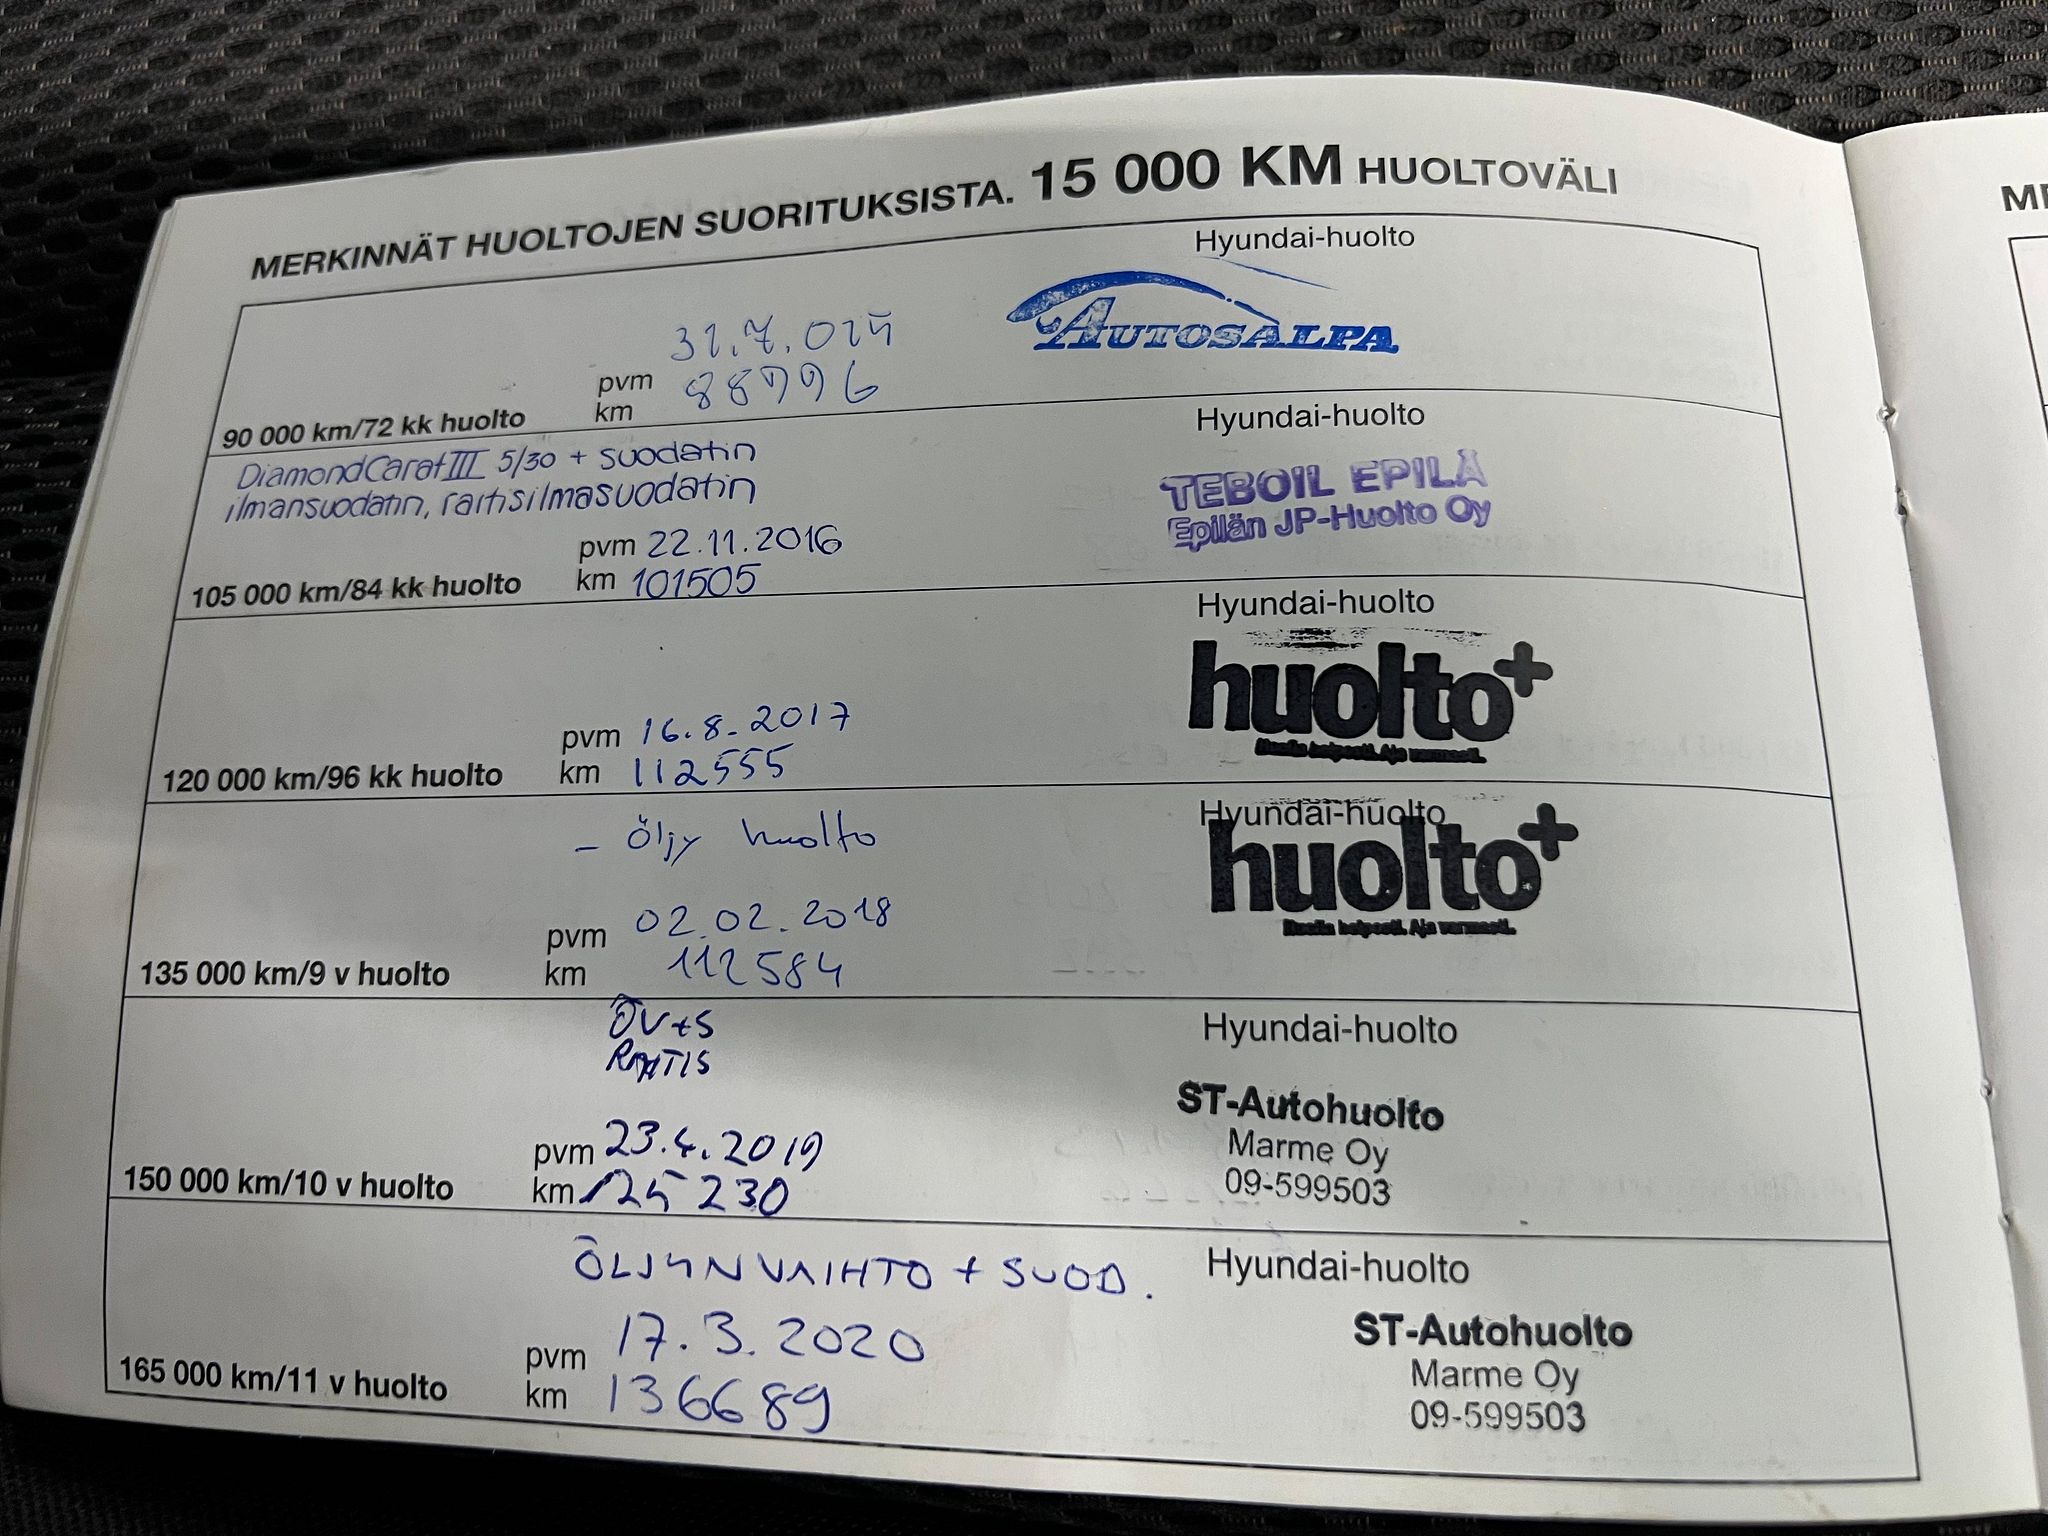 MERKINNÄT HUOLTOJEN SUORITUKSISTA. 15 000 KM HUOLTOVÄLI
Hyundai-huolto
AUTOSALPA
31.7.015
pvm
88996
km
90 000 km/72 kk huolto
Hyundai-huolto
DiamondCarat III 5/30 + suodatin
ilmansuodatin, raitisilmasuodatin
TEBOIL EPILÄ
Epilän JP-Huolto Oy
pvm 22.11.2016
km 101505
105 000 km/84 kk huolto
Hyundai-huolto
huolto+
Huolla helposti. Aja varmasti.
pvm 16.8.2017
km 112555
120 000 km/96 kk huolto
Hyundai-huolto
- Öljy huolto
huolto+
Huolla helposti. Aja varmasti.
pvm 02.02.2018
km 112584
135 000 km/9 v huolto
Hyundai-huolto
ÖV+S
RAITIS
ST-Autohuolto
Marme Oy
09-599503
pvm 23.4.2019
km 125 230
150 000 km/10 v huolto
Hyundai-huolto
ÖLJYNVAIHTO + SUOD.
ST-Autohuolto
Marme Oy
09-599503
pvm 17.3.2020
km 136689
165 000 km/11 v huolto